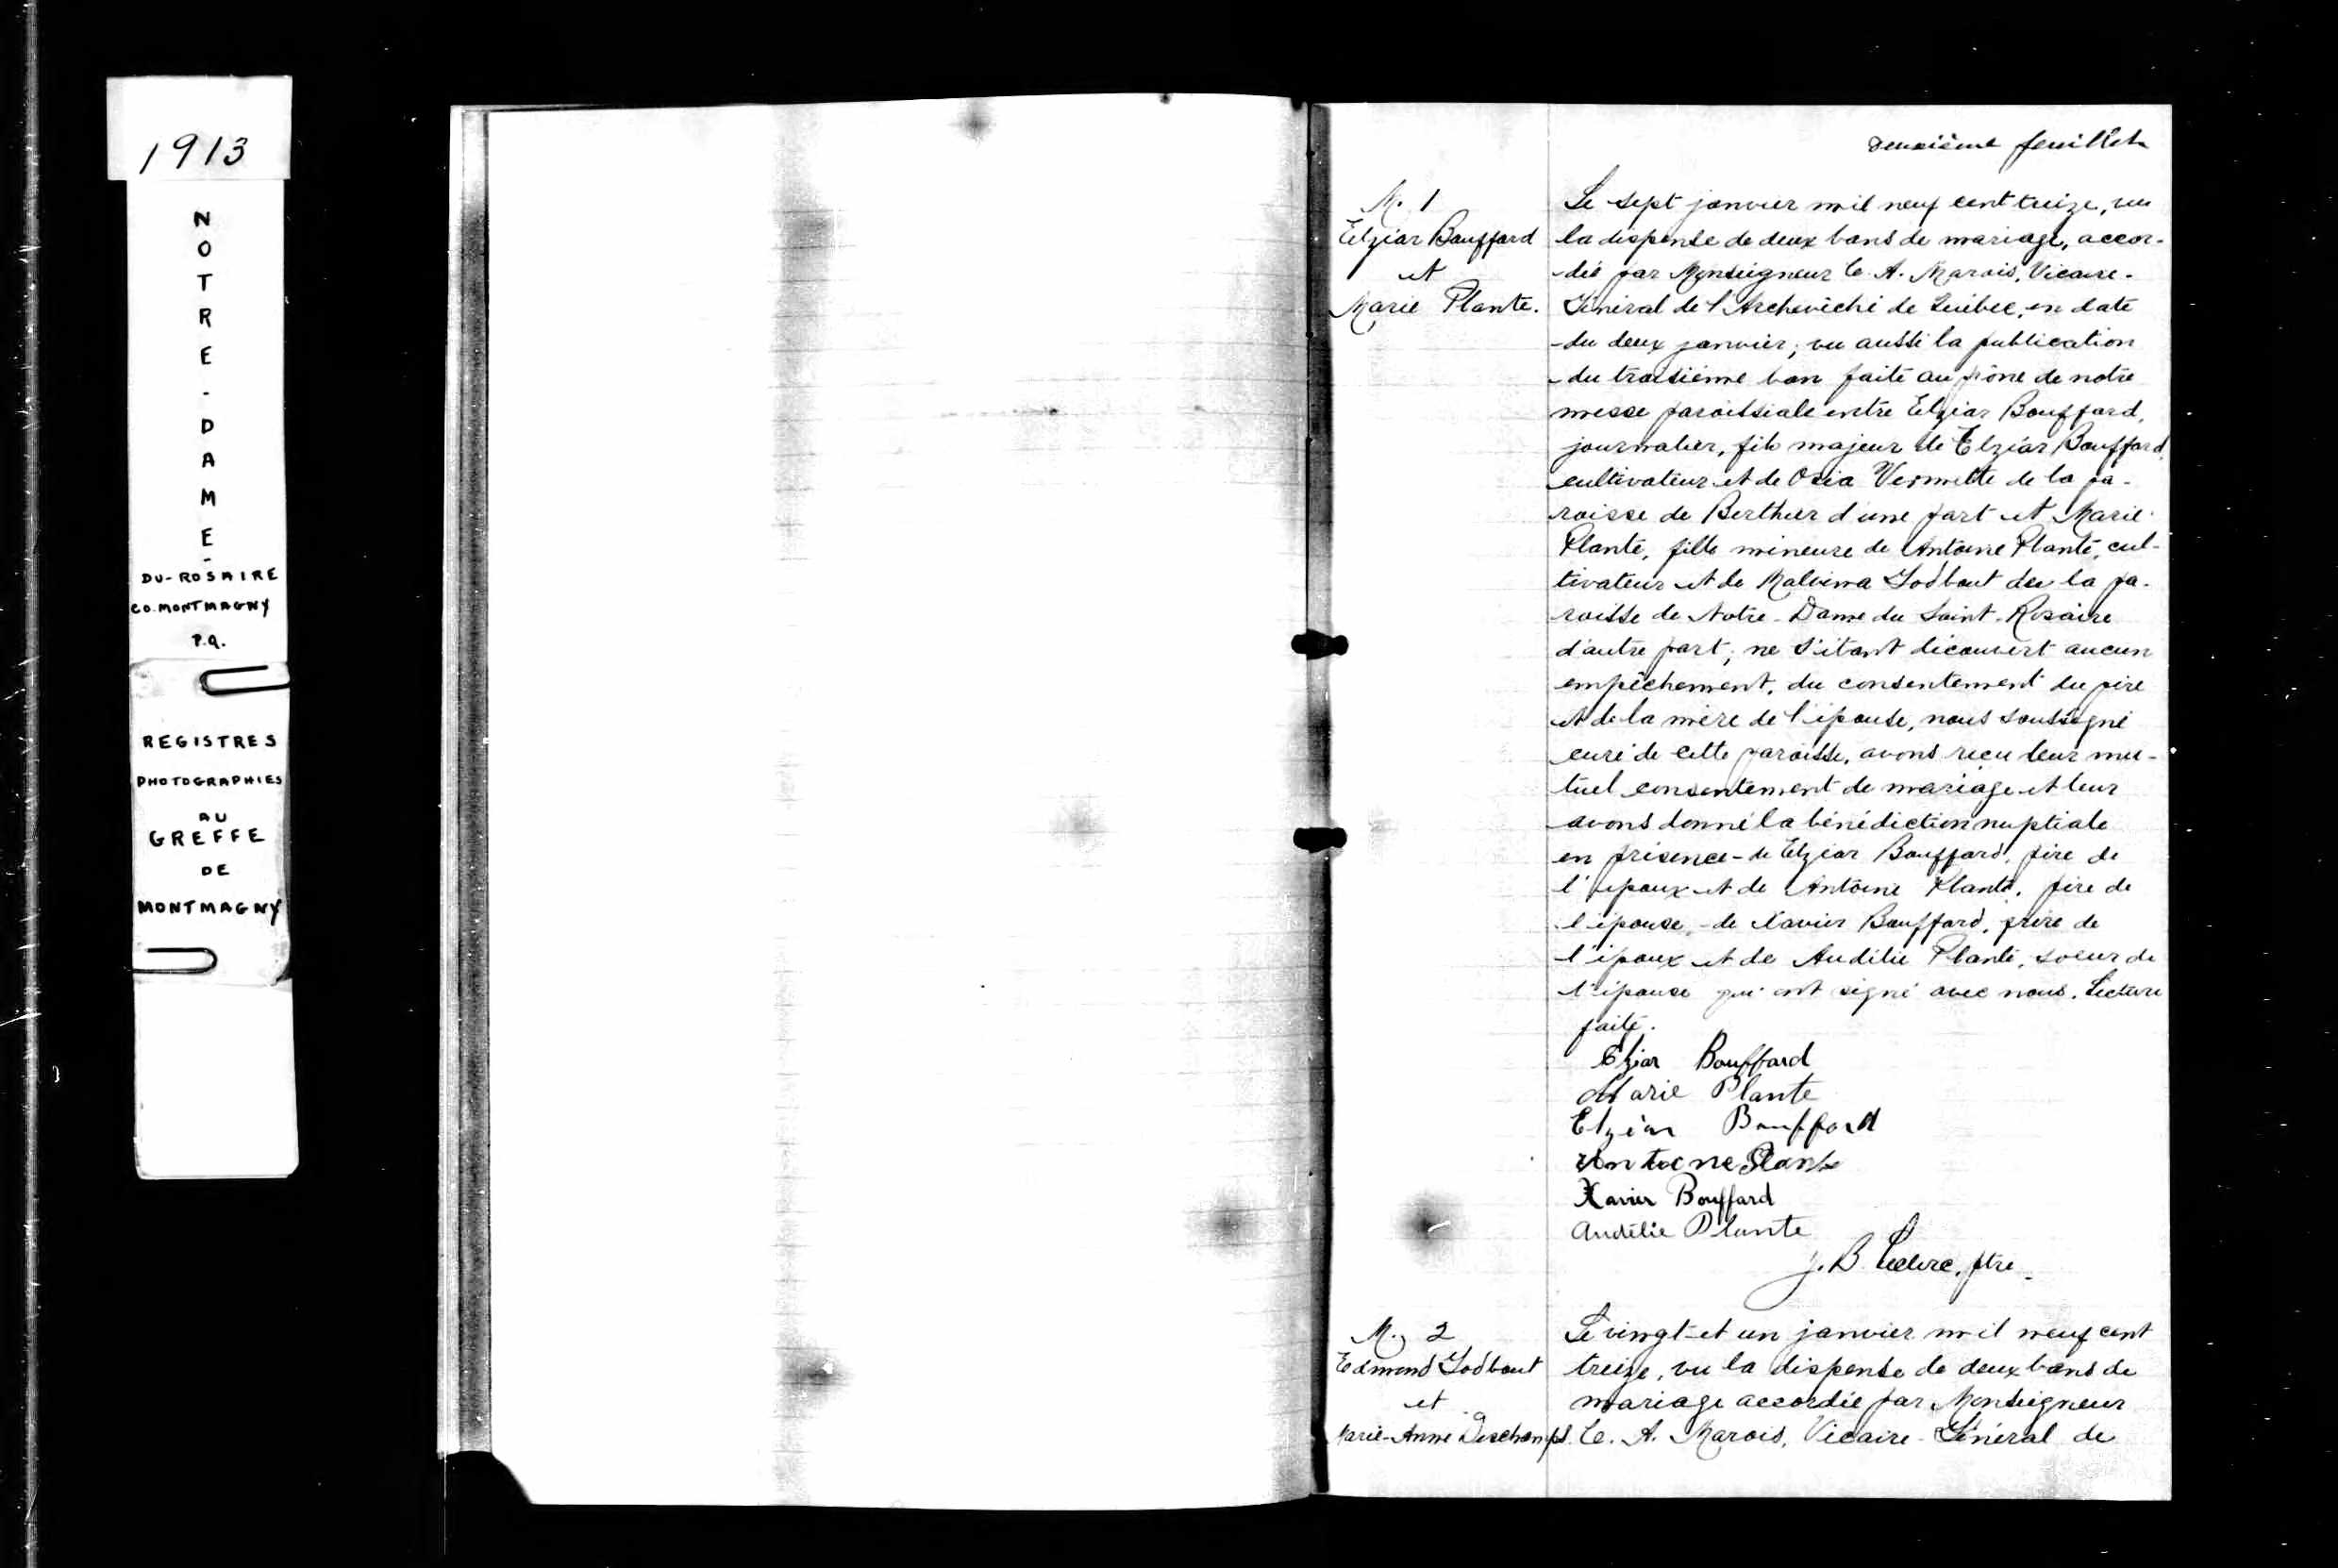 1913
NOTRE-DAME-
DU-ROSAIRE
CO. MONTMAGNY
P.Q.
REGISTRES
PHOTOGRAPHIES
AU
GREFFE
DE
MONTMAGNY
deuxième feuillet
M. 1
Elzéar Bouffard
et
Marie Plante.
Le sept janvier mil neuf cent treize, vu
la dispense de deux bans de mariage, accor-
dée par Monseigneur C. A. Marois, Vicaire-
Général de l'Archevêché de Québec, en date
du deux janvier; vu aussi la publication
du troisième ban faite au prône de notre
messe paroissiale entre Elzéar Bouffard,
journalier, fils majeur de Elzéar Bouffard,
cultivateur et de Osia Vermette de la pa-
roisse de Berthier d'une part et Marie
Plante, fille mineure de Antoine Plante, cul-
tivateur et de Malvina Godbout de la pa-
roisse de Notre-Dame du Saint-Rosaire
d'autre part; ne s'étant découvert aucun
empêchement, du consentement du père
et de la mère de l'épouse, nous soussigné
curé de cette paroisse, avons reçu leur mu-
tuel consentement de mariage et leur
avons donné la bénédiction nuptiale
en présence de Elzéar Bouffard, père de
l'époux et de Antoine Plante, père de
l'épouse, de Xavier Bouffard, frère de
l'époux et de Audélie Plante, soeur de
l'épouse qui ont signé avec nous. Lecture
faite.
Elzéar Bouffard
Marie Plante
Elzéar Bouffard
Antoine Plante
Xavier Bouffard
Audélie Plante
J. B. Leclerc, ptre
M. 2
Edmond Godbout
et
Marie-Anne Deschamps.
Le vingt-et un janvier mil neuf cent
treize, vu la dispense de deux bans de
mariage accordée par Monseigneur
C. A. Marois, Vicaire-Général de